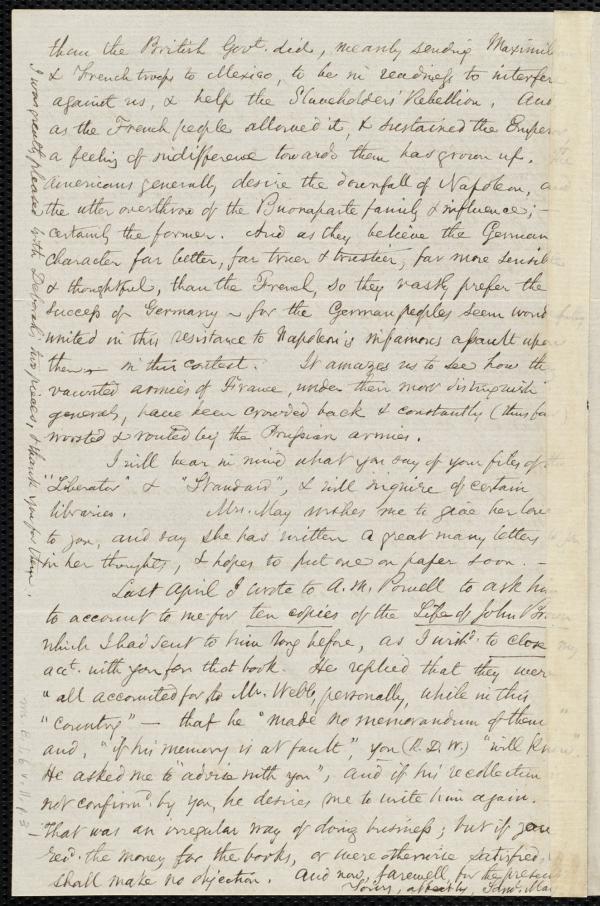 than the British Govt. did, meanly sending Maximil
& French troops to Mexico, to be in readiness to interfer
against us, & help the Slaveholders' Rebellion. And
as the French people allowed it, & sustained the Emper
a feeling of indifference towards them has grown up.
Americans generally desire the downfall of Napoleon, a
the utter overthrow of the Buonaparte family & influence; –
certainly the former. And as they believe the German
character far better, far truer & trustier, far more sensib
& thoughtful, than the French, so they vastly prefer the
success of Germany – for the German peoples seem
united in this resistance to Napoleon's infamous assault upon
them – in this contest. It amazes us to see how the
vaunted armies of France, under their most distinguish
generals, have been crowded back & constantly (thus fa
worsted & routed by the Prussian armies.
I will bear in mind what you say of your files of
"Liberator" & "Standard", & will inquire of certain
libraries. Mrs. May wishes me to give her love
to you, and say she has written a great many letters
in her thoughts, & hopes to put one on paper soon. –
Last April I wrote to A. M. Powell to ask him
to account to me for ten copies of the Life of John Brown
which I had sent to him long before, as I wish'd to close
acct. with you for that book. He replied that they were
"all accounted for to Mr. Webb, personally, while in this
"country" – that he "made no memorandum of them
and, "if his memory is at fault", you (R. D. W.) "will know
He asked me to "advise with you", and if his recollection
not confirm'd by you, he desires me to write him again.
That was an irregular way of doing business; but if you
recd. the money for the books, or were otherwise satisfied,
shall make no objection. And now, farewell, for the present
Yours, affectly, Saml. May
I was greatly pleased with Deborah's two pieces, & thank you for them.